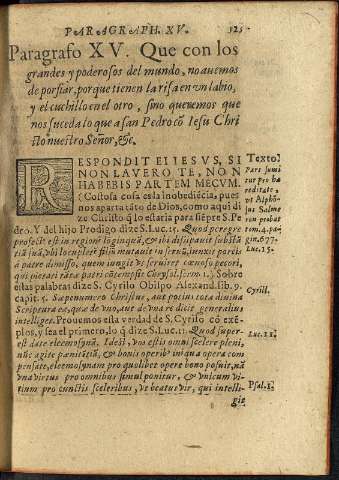 PARAGRAPH. XV. 325
Paragrafo XV. Que con los
grandes y poderosos del mundo, no auemos
de porfiar, porque tienen la risa en vn labio,
y el cuchillo en el otro, sino queremos que
nos suceda lo que a san Pedro cõ Iesu Chri
sto nuestro Señor, &c.
RESPONDIT EI IESVS, SI
NON LAVERO TE, NON
HABEBIS PARTEM MECVM.
(Costosa cosa es la inobediẽcia, pues
nos aparta tãto de Dios, como aqui di
ze Christo q̃ lo estaria para siẽpre S. Pe
dro. Y del hijo Prodigo dize S. Luc. 15. Quod peregre
profectᵒ est in regionẽ longinquã, & ibi dissipauit substã
tiã suã, vbi locupletis filiũ mutauit in seruũ, inuenit porcũ
à patre dimisso, quem iungit vt seruiret cænoso pecori,
qui pietati tãta patri cõtempsit Chrysol. serm 1.) Sobre
estas palabras dize S. Cyrilo Obispo Alexand. lib. 9.
capit. 5. Sæpenumero Christus, aut potius tota diuina
Scriptura ea, quæ de vno, aut de vna re dicit generalius
intelliges. Prouemos esta verdad de S. Cyrilo cõ exẽ-
plos, y sea el primero, lo q̃ dize S. Luc. 11. Quod super-
est date eleemosynã. Idest, vos estis omni scelere pleni,
nũc agite pœnitẽtiã, & bonis operibᵒ in qua opera com
pensate, eleemosynam pro quolibet opere bono posuit, nã
vna virtus pro omnibus simul ponitur, & vnicum vi-
tium pro cunctis sceleribus, vt beatus vir, qui intelli-
git
Texto.
Pars sumi
tur pro hæ
reditate,
vt Alphõ-
sus Salme
ron probat
tom. 4. pa-
gin. 677.
Luc. 15.
Cyrill.
Luc. 11.
Psal. 1.